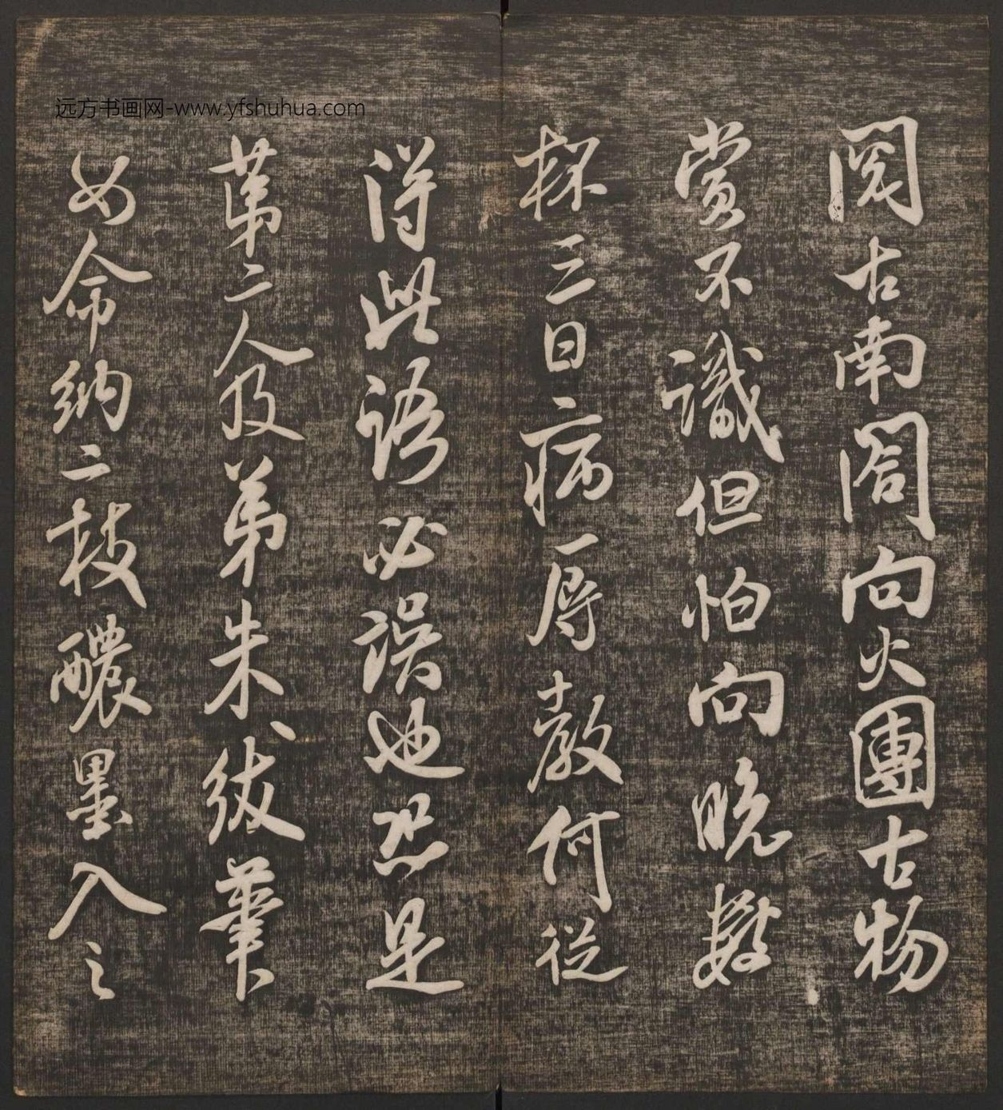 远方书画网-www.yfshuhua.com
閱古南閣向火團古物
賞不識但怕向晚數
杯三日病辱教何從
得此語必誤也恐是
第二人及弟朱紱筆
如命納二枝醲墨入之